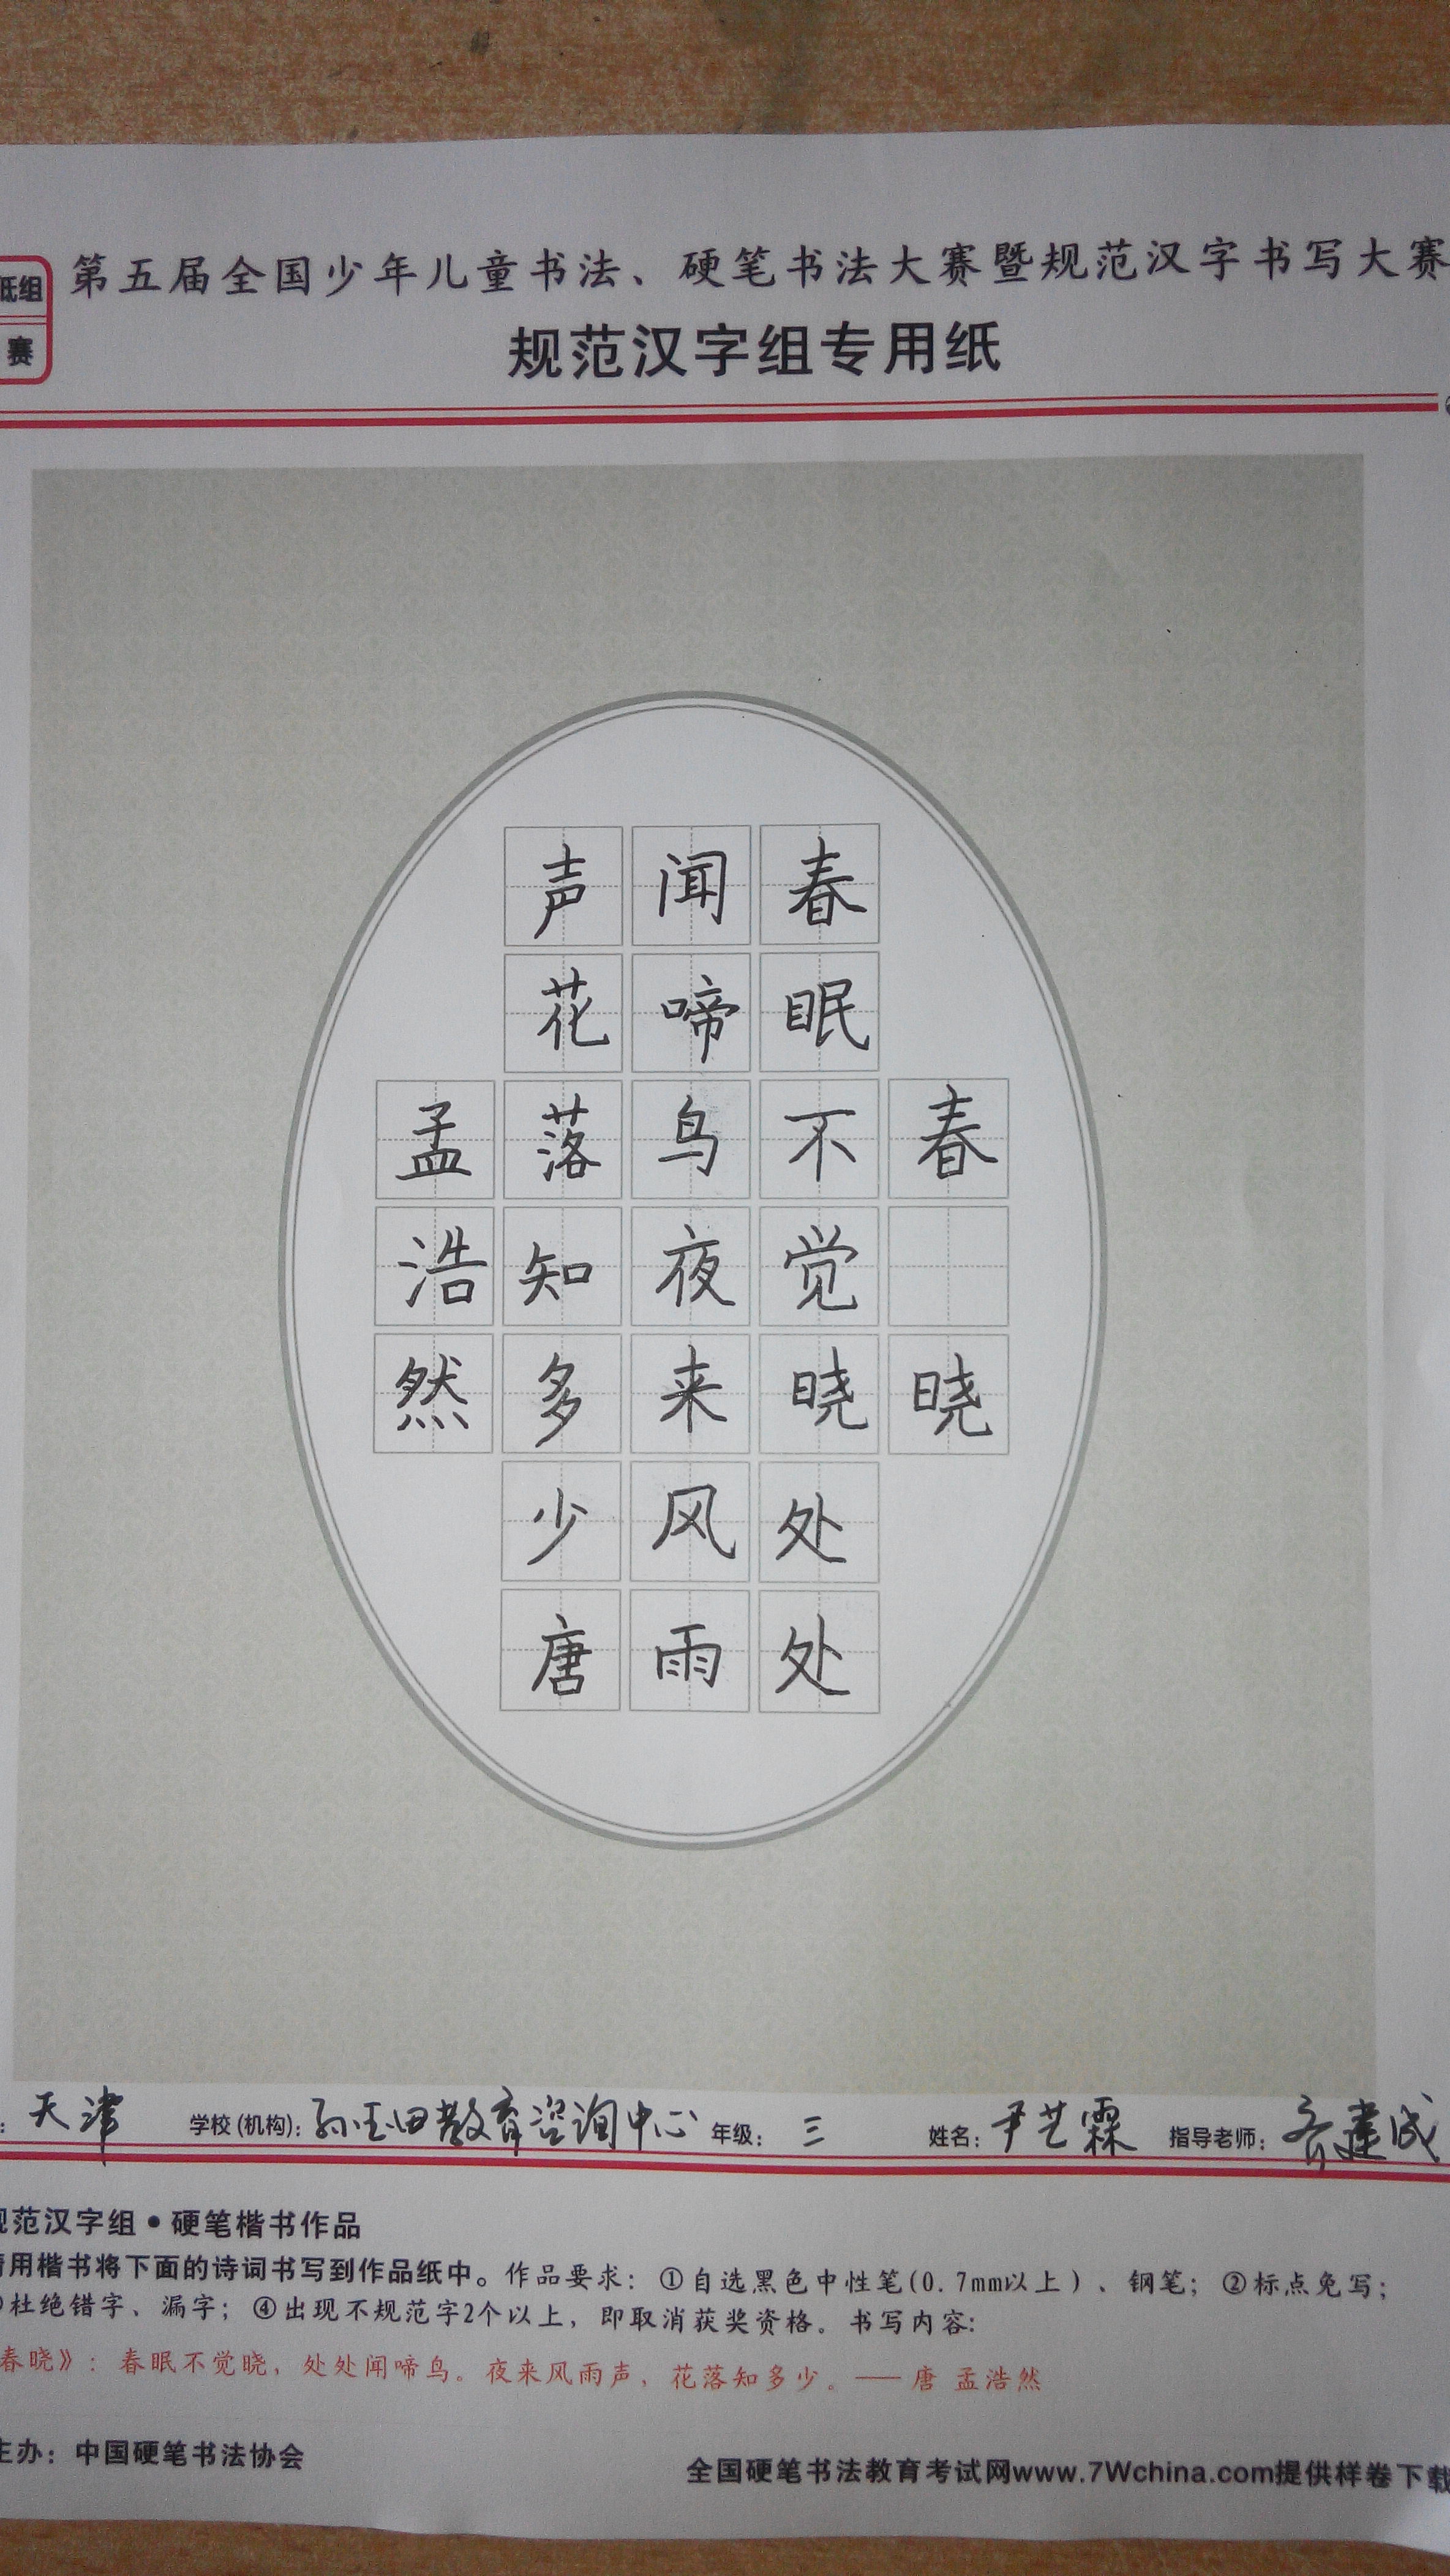 第五届全国少年儿童书法、硬笔书法大赛暨规范汉字书写大赛
低组
赛
规范汉字组专用纸
春晓
春眠不觉晓处处
闻啼鸟夜来风雨
声花落知多少唐
孟浩然
：天津 学校(机构)：孙玉田教育咨询中心 年级：三 姓名：尹艺霖 指导老师：齐建成
规范汉字组•硬笔楷书作品
请用楷书将下面的诗词书写到作品纸中。作品要求：①自选黑色中性笔(0.7mm以上)、钢笔；②标点免写；
杜绝错字、漏字；④出现不规范字2个以上，即取消获奖资格。书写内容：
春晓》：春眠不觉晓，处处闻啼鸟。夜来风雨声，花落知多少。——唐 孟浩然
主办：中国硬笔书法协会
全国硬笔书法教育考试网www.7Wchina.com提供样卷下载